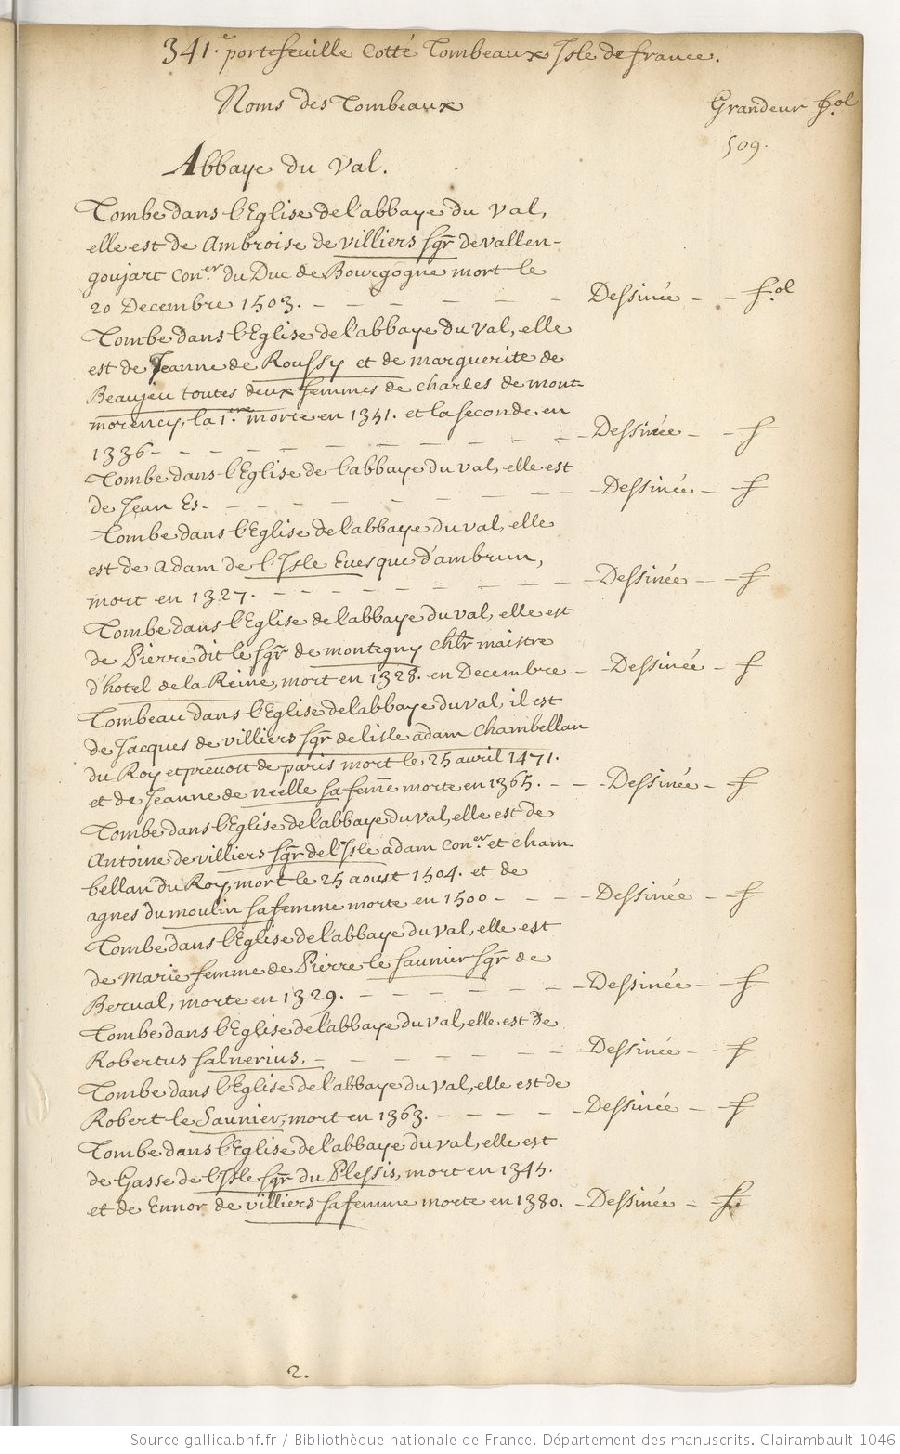 341.e portefeuille cotté Tombeaux Isle de france.
Noms des Tombeaux
Grandeur fol
509.
Abbaye du Val.
Tombe dans l'Eglise de l'abbaye du Val,
elle est de Ambroise de villiers sgr de vallen-
goujart Coner du Duc de Bourgogne mort le
20 Decembre 1503. - - - - - - Dessinée - - fol
Tombe dans l'Eglise de l'abbaye du val, elle
est de Jeanne de Roussy et de marguerite de
Beaujeu toutes deux femmes de charles de mont-
morency, la 1ere morte en 1341. et la seconde en
1336 - - - - - - - - - Dessinée - - f
Tombe dans l'Eglise de l'abbaye du val, elle est
de Jean Es. - - - - - - - Dessinée. - f
Tombe dans l'Eglise de l'abbaye du val, elle
est de adam de l'Isle Evesque d'ambrun,
mort en 1327. - - - - - - - Dessinée - - f
Tombe dans l'Eglise de l'abbaye du val, elle est
de Pierre dit le sgr de montegny chlr maistre
d'hotel de la Reine, mort en 1328. en Decembre - - Dessinée - f
Tombeau dans l'Eglise de l'abbaye du val, il est
de Jacques de villiers sgr de l'isle adam Chambellan
du Roy et prevost de paris mort le 25 avril 1471.
et de Jeanne de nielle sa feme morte en 1365. - - - Dessinée - f
Tombe dans l'Eglise de l'abbaye du val, elle est de
Antoine de villiers sgr de l'Isle adam coner et cham
bellan du Roy, mort le 25 aoust 1504. et de
agnes du moulin sa femme morte en 1500 - - - - Dessinée - f
Tombe dans l'Eglise de l'abbaye du val, elle est
de Marie femme de Pierre le saunier sgr de
Berval, morte en 1329. - - - - - - Dessinée - f
Tombe dans l'Eglise de l'abbaye du val, elle est de
Robertus salnerius. - - - - - - Dessinée - f
Tombe dans l'Eglise de l'abbaye du val, elle est de
Robert le Saunier, mort en 1363. - - - - Dessinée - f
Tombe dans l'Eglise de l'abbaye du val, elle est
de Gasse de l'Isle sgr du Plessis, mort en 1345.
et de Ennor de villiers sa femme morte en 1380. - Dessinée - f.
2.
Source gallica.bnf.fr / Bibliothèque nationale de France. Département des manuscrits. Clairambault 1046